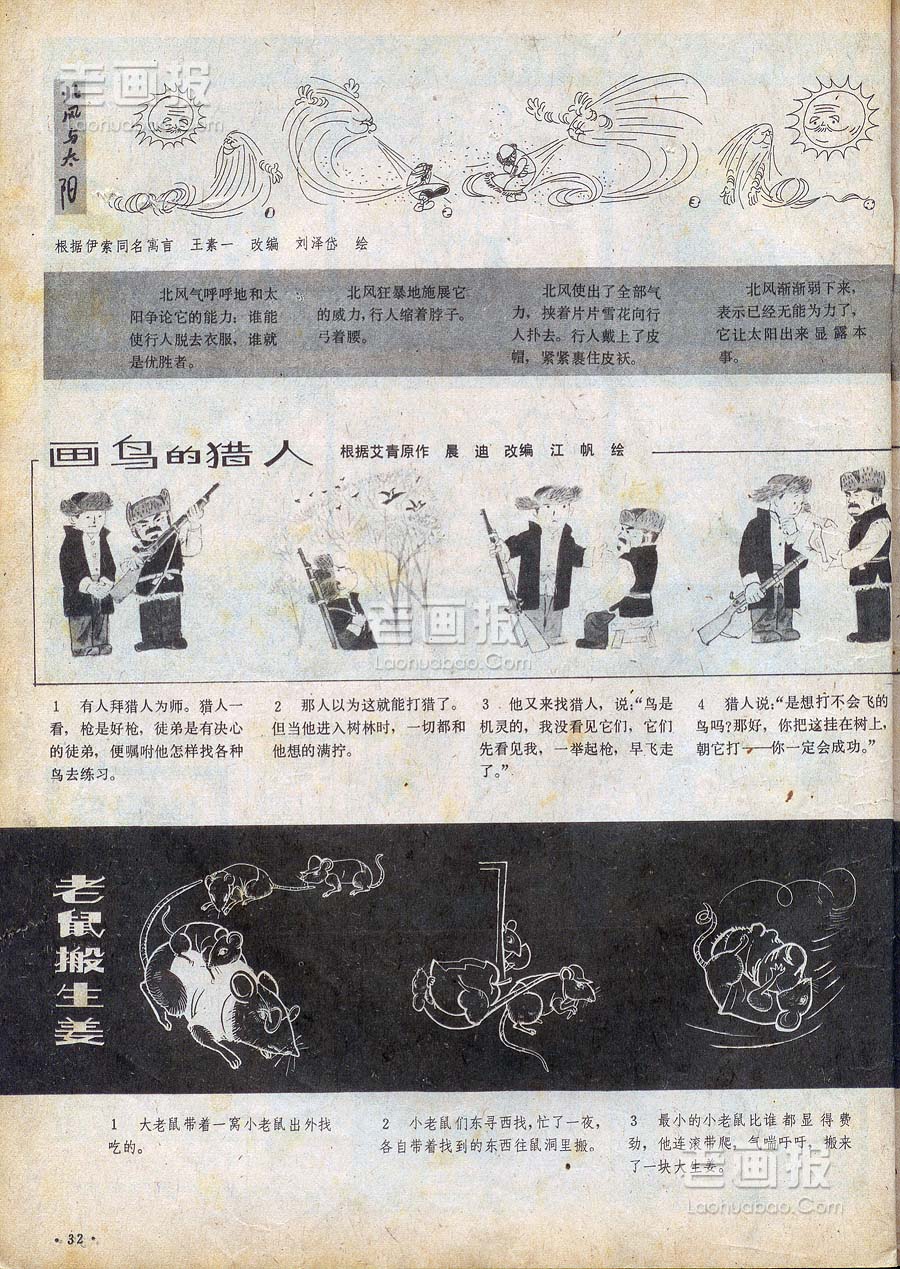 老画报
Laohuabao.Com
北风与太阳
根据伊索同名寓言 王素一 改编 刘泽岱 绘
北风气呼呼地和太
阳争论它的能力：谁能
使行人脱去衣服，谁就
是优胜者。
北风狂暴地施展它
的威力，行人缩着脖子。
弓着腰。
北风使出了全部气
力，挟着片片雪花向行
人扑去。行人戴上了皮
帽，紧紧裹住皮袄。
北风渐渐弱下来，
表示已经无能为力了，
它让太阳出来显露本
事。
画鸟的猎人
根据艾青原作 晨迪 改编 江帆 绘
老画报
Laohuabao.Com
1 有人拜猎人为师。猎人一
看，枪是好枪，徒弟是有决心
的徒弟，便嘱咐他怎样找各种
鸟去练习。
2 那人以为这就能打猎了。
但当他进入树林时，一切都和
他想的满拧。
3 他又来找猎人，说：“鸟是
机灵的，我没看见它们，它们
先看见我，一举起枪，早飞走
了。”
4 猎人说：“是想打不会飞的
鸟吗？那好，你把这挂在树上，
朝它打——你一定会成功。”
老鼠搬生姜
1 大老鼠带着一窝小老鼠出外找
吃的。
2 小老鼠们东寻西找，忙了一夜，
各自带着找到的东西往鼠洞里搬。
3 最小的小老鼠比谁都显得费
劲，他连滚带爬，气喘吁吁，搬来
了一块大生姜。
老画报
Laohuabao.Com
·32·